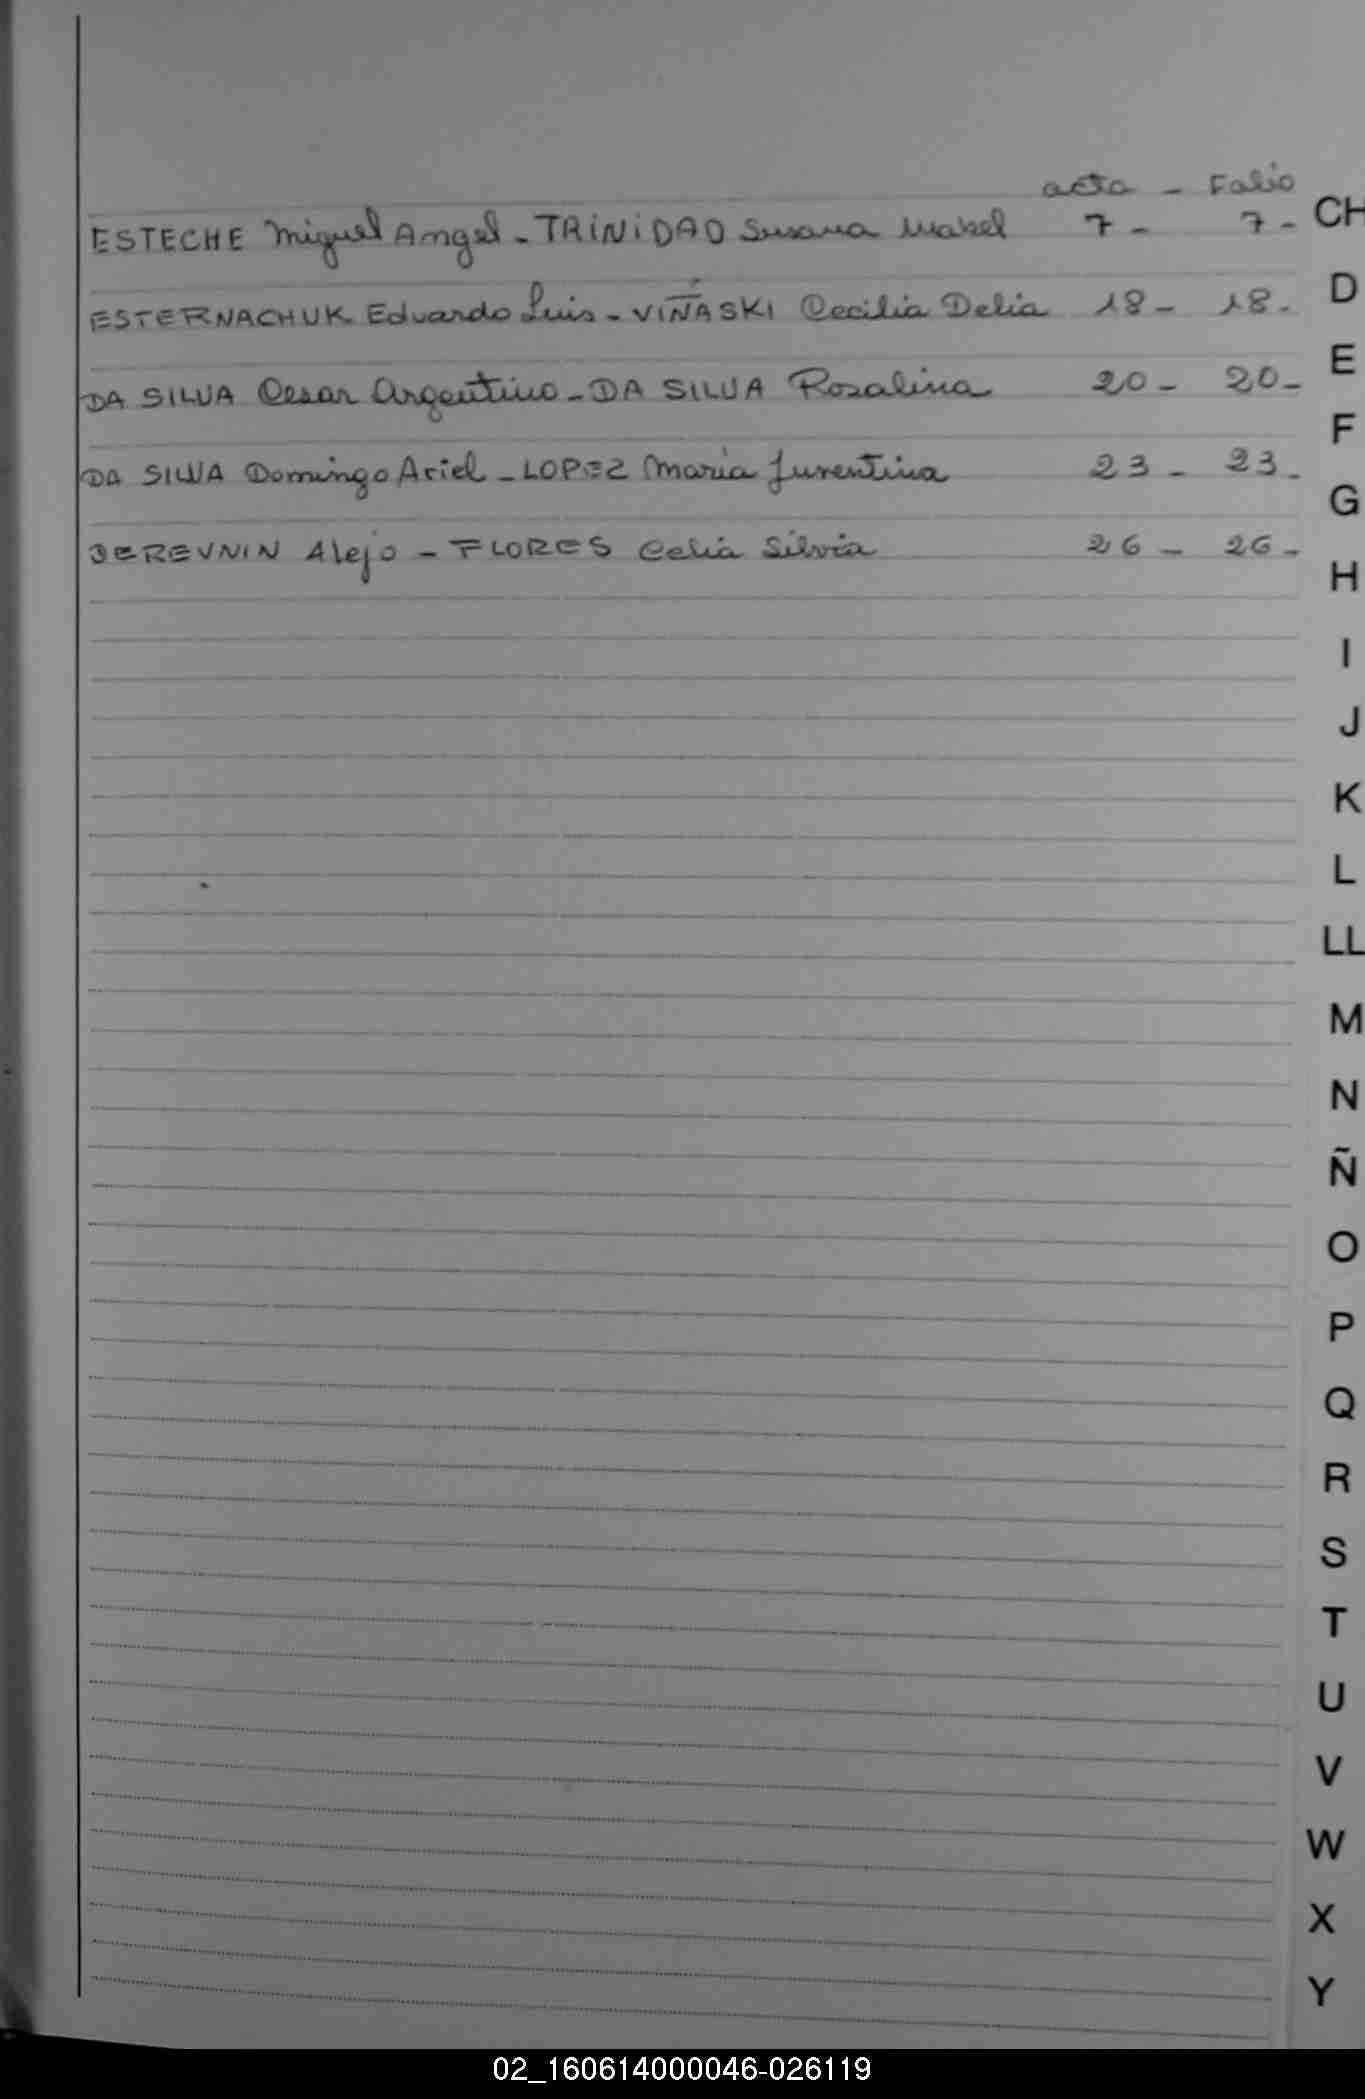 acta - Folio
ESTECHE Miguel Angel - TRINIDAD Susana Mabel 7 - 7 -
ESTERNACHUK Eduardo Luis - VIÑASKI Cecilia Delia 18 - 18 -
DA SILVA Cesar Argentino - DA SILVA Rosalina 20 - 20 -
DA SILVA Domingo Ariel - LOPEZ Maria Juventina 23 - 23 -
DEREVNIN Alejo - FLORES Celia Silvia 26 - 26 -
CH
D
E
F
G
H
I
J
K
L
LL
M
N
Ñ
O
P
Q
R
S
T
U
V
W
X
Y
02_160614000046-026119